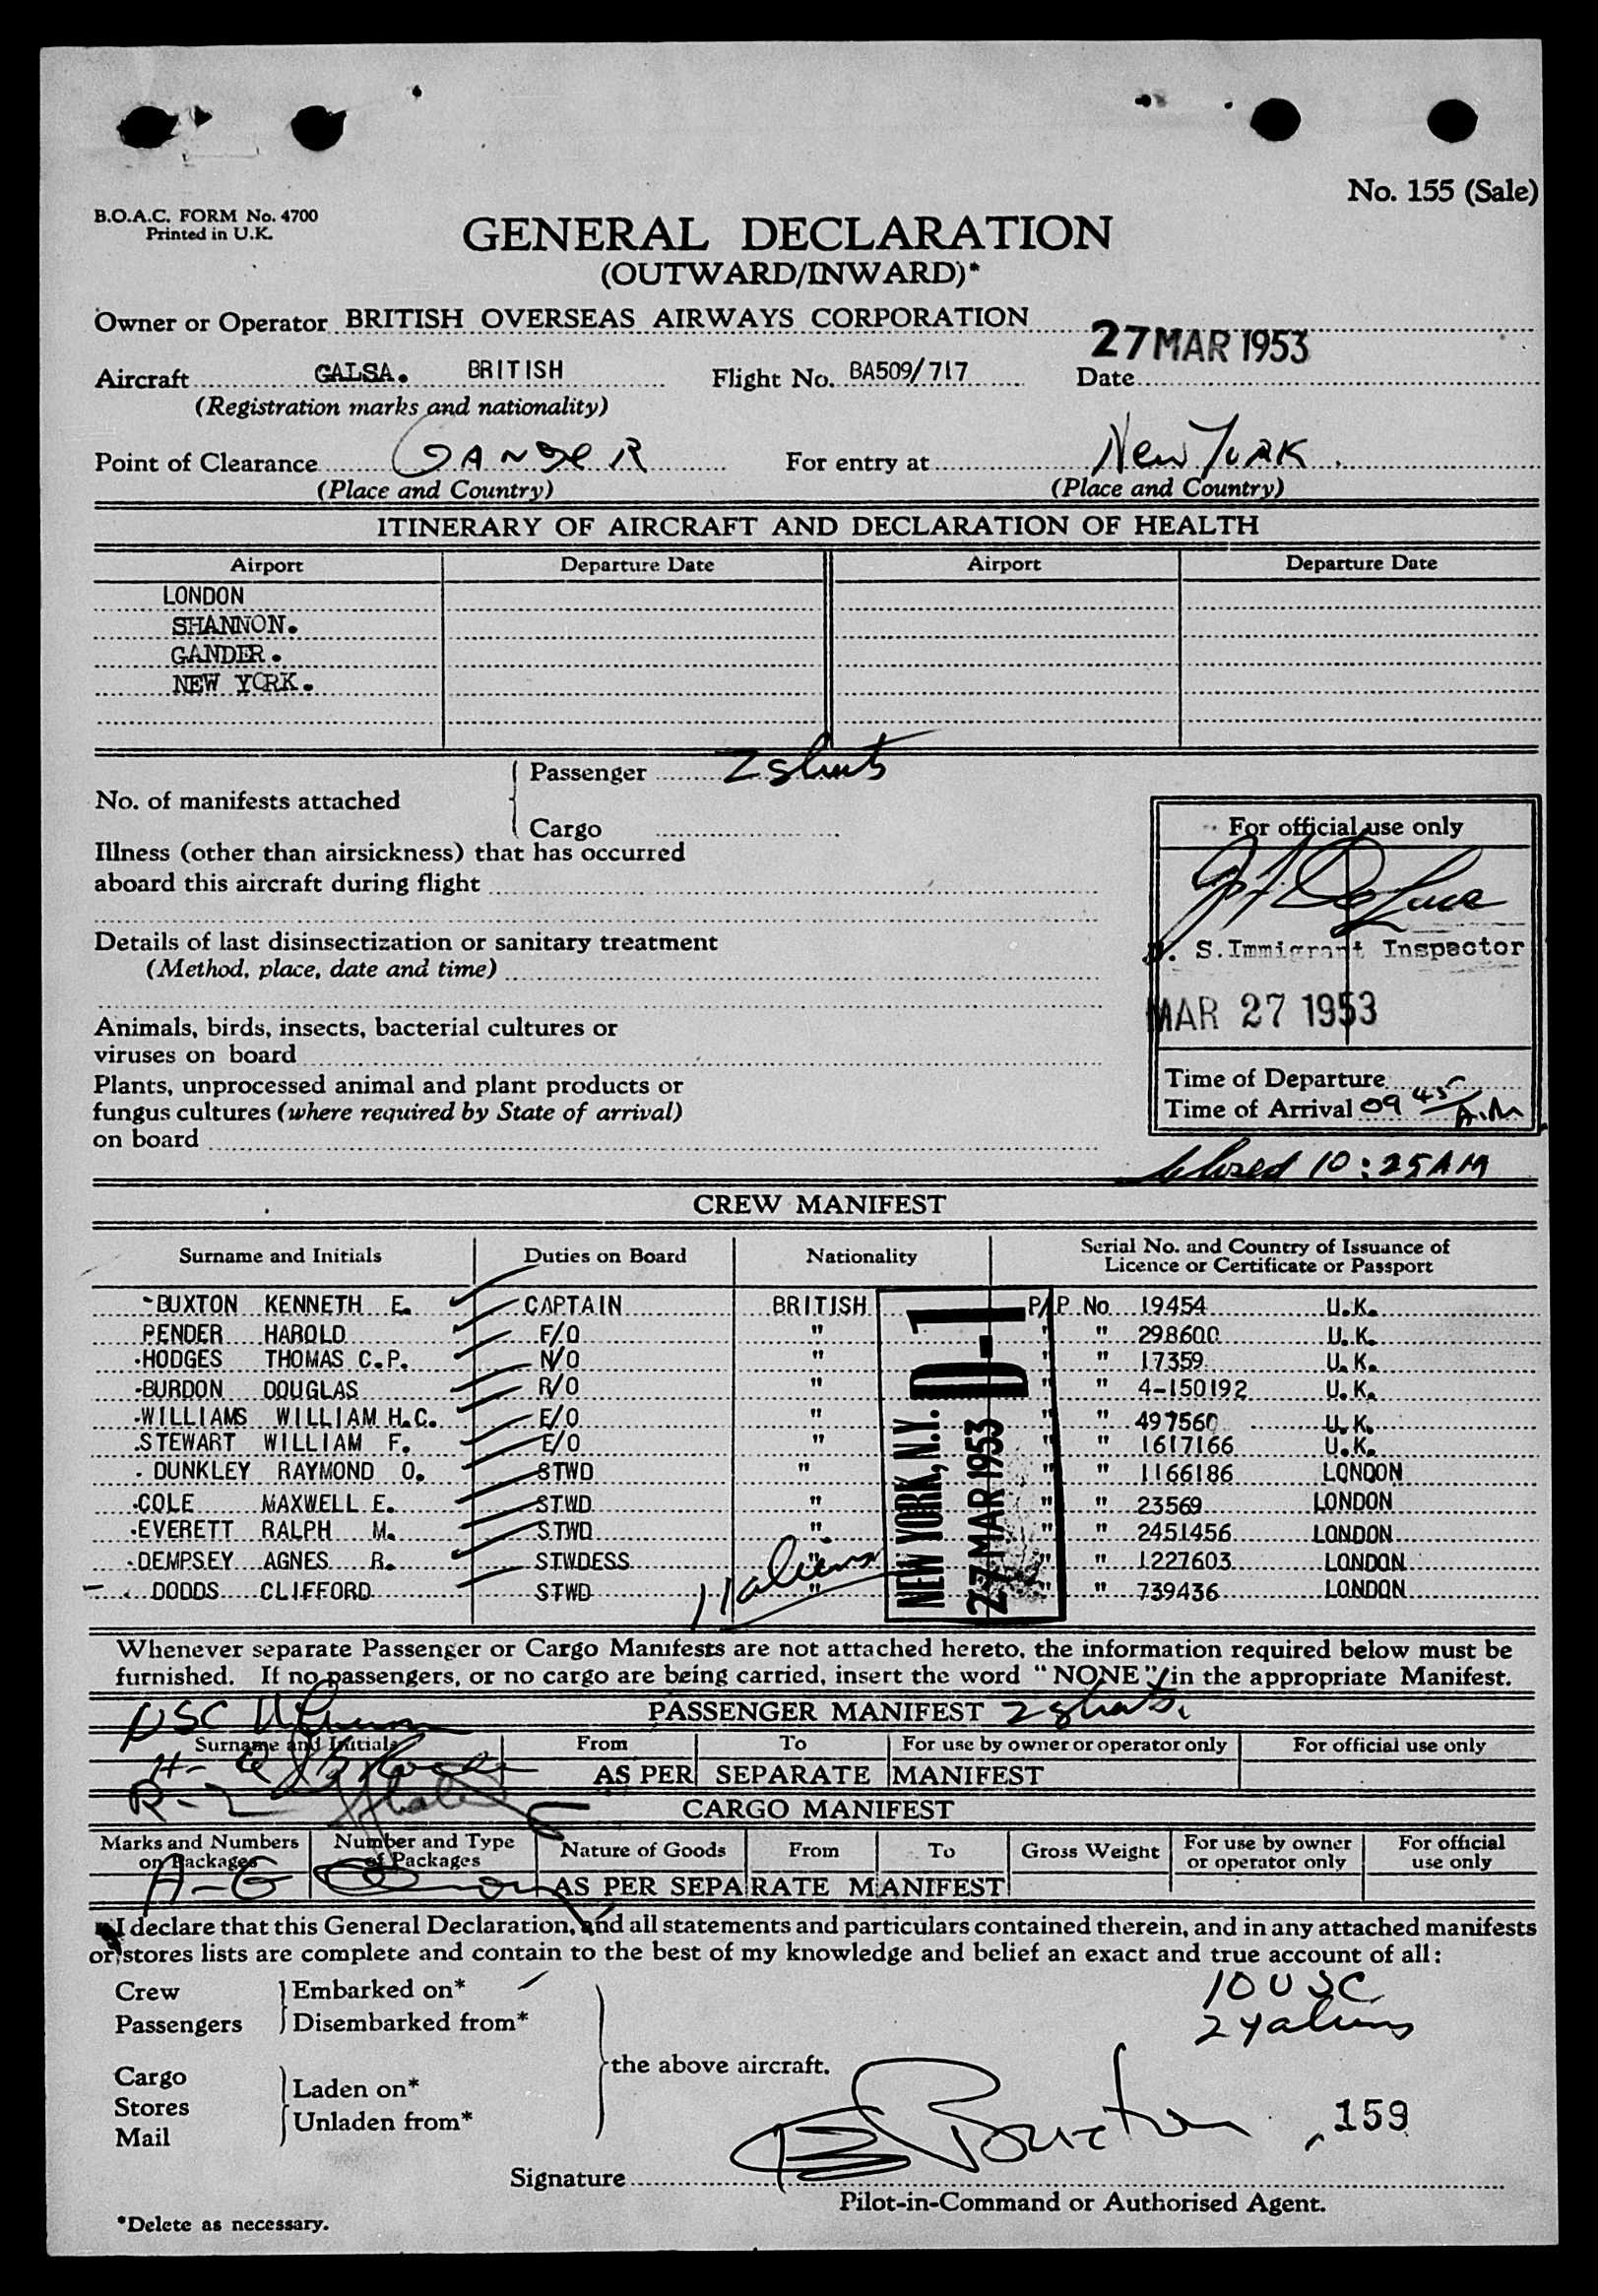 No. 155 (Sale)
B.O.A.C. FORM No. 4700
Printed in U.K.
GENERAL DECLARATION
(OUTWARD/INWARD)*
Owner or Operator BRITISH OVERSEAS AIRWAYS CORPORATION
27 MAR 1953
Aircraft GALSA. BRITISH Flight No. BA509/717 Date
(Registration marks and nationality)
Point of Clearance GANDER For entry at New York.
(Place and Country) (Place and Country)
ITINERARY OF AIRCRAFT AND DECLARATION OF HEALTH
Airport Departure Date Airport Departure Date
LONDON
SHANNON.
GANDER.
NEW YORK.
Passenger 2 sheets
No. of manifests attached
Cargo
For official use only
Illness (other than airsickness) that has occurred
aboard this aircraft during flight
Details of last disinsectization or sanitary treatment
(Method, place, date and time)
U. S. Immigrant Inspector
MAR 27 1953
Animals, birds, insects, bacterial cultures or
viruses on board
Plants, unprocessed animal and plant products or
fungus cultures (where required by State of arrival)
on board
Time of Departure
Time of Arrival 09 45 A.M
10:25 AM
CREW MANIFEST
Surname and Initials Duties on Board Nationality Serial No. and Country of Issuance of
Licence or Certificate or Passport
BUXTON KENNETH E. CAPTAIN BRITISH P/P No 19454 U.K.
PENDER HAROLD F/O " " " 298600 U.K.
HODGES THOMAS C.P. N/O " " " 17359 U.K.
BURDON DOUGLAS R/O " " " 4-150192 U.K.
WILLIAMS WILLIAM H.C. E/O " " " 497560 U.K.
STEWART WILLIAM F. E/O " " " 1617166 U.K.
DUNKLEY RAYMOND O. STWD " " " 1166186 LONDON
COLE MAXWELL E. STWD " " " 23569 LONDON
EVERETT RALPH M. STWD " " " 2451456 LONDON
DEMPSEY AGNES R. STWDESS " " " 1227603 LONDON
DODDS CLIFFORD STWD " " " 739436 LONDON
11 aliens
NEW YORK, N.Y. D-1
27 MAR 1953
Whenever separate Passenger or Cargo Manifests are not attached hereto, the information required below must be
furnished. If no passengers, or no cargo are being carried, insert the word "NONE" in the appropriate Manifest.
USC
PASSENGER MANIFEST 2 sheets
Surname and Initials From To For use by owner or operator only For official use only
AS PER SEPARATE MANIFEST
R-2
CARGO MANIFEST
Marks and Numbers on Packages Number and Type of Packages Nature of Goods From To Gross Weight For use by owner or operator only For official use only
A-G
AS PER SEPARATE MANIFEST
I declare that this General Declaration, and all statements and particulars contained therein, and in any attached manifests
or stores lists are complete and contain to the best of my knowledge and belief an exact and true account of all:
Crew Embarked on*
Passengers Disembarked from*
10 USC
24 aliens
the above aircraft.
Cargo
Stores
Mail
Laden on*
Unladen from*
Buxton
159
Signature
Pilot-in-Command or Authorised Agent.
*Delete as necessary.